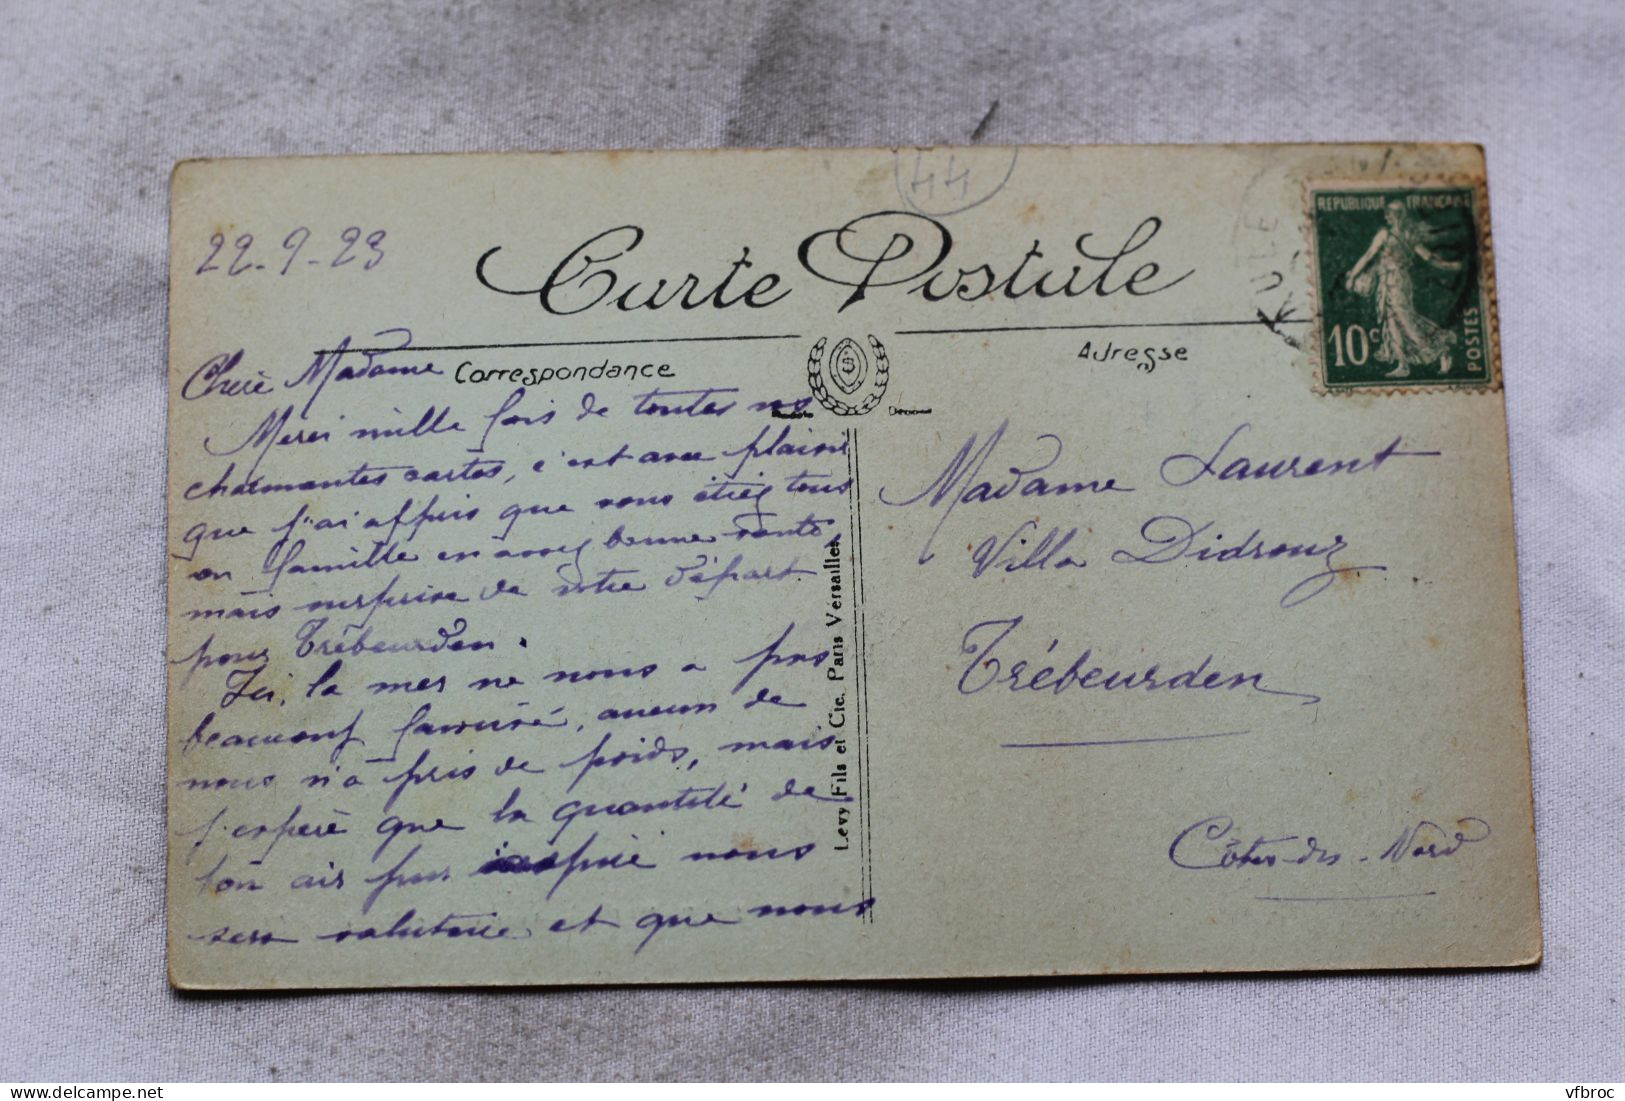 44
22-9-23
Carte Postale
REPUBLIQUE FRANÇAISE
10c
POSTES
Correspondance
Adresse
Chère Madame
Merci mille fois de toutes vos
charmantes cartes, c'est avec plaisir
que j'ai appris que vous étiez tous
en famille en assez bonne santé,
mais surprise de votre départ
pour Trébeurden.
Ici, la mer ne nous a pas
beaucoup favorisé, aucun de
nous n'a pris de poids, mais
j'espère que la quantité de
bon air pur inspiré nous
sera salutaire et que nous
Levy Fils et Cie. Paris Versailles
Madame Laurent
Villa Didrouz
Trébeurden
Côtes-du-Nord
vfbroc